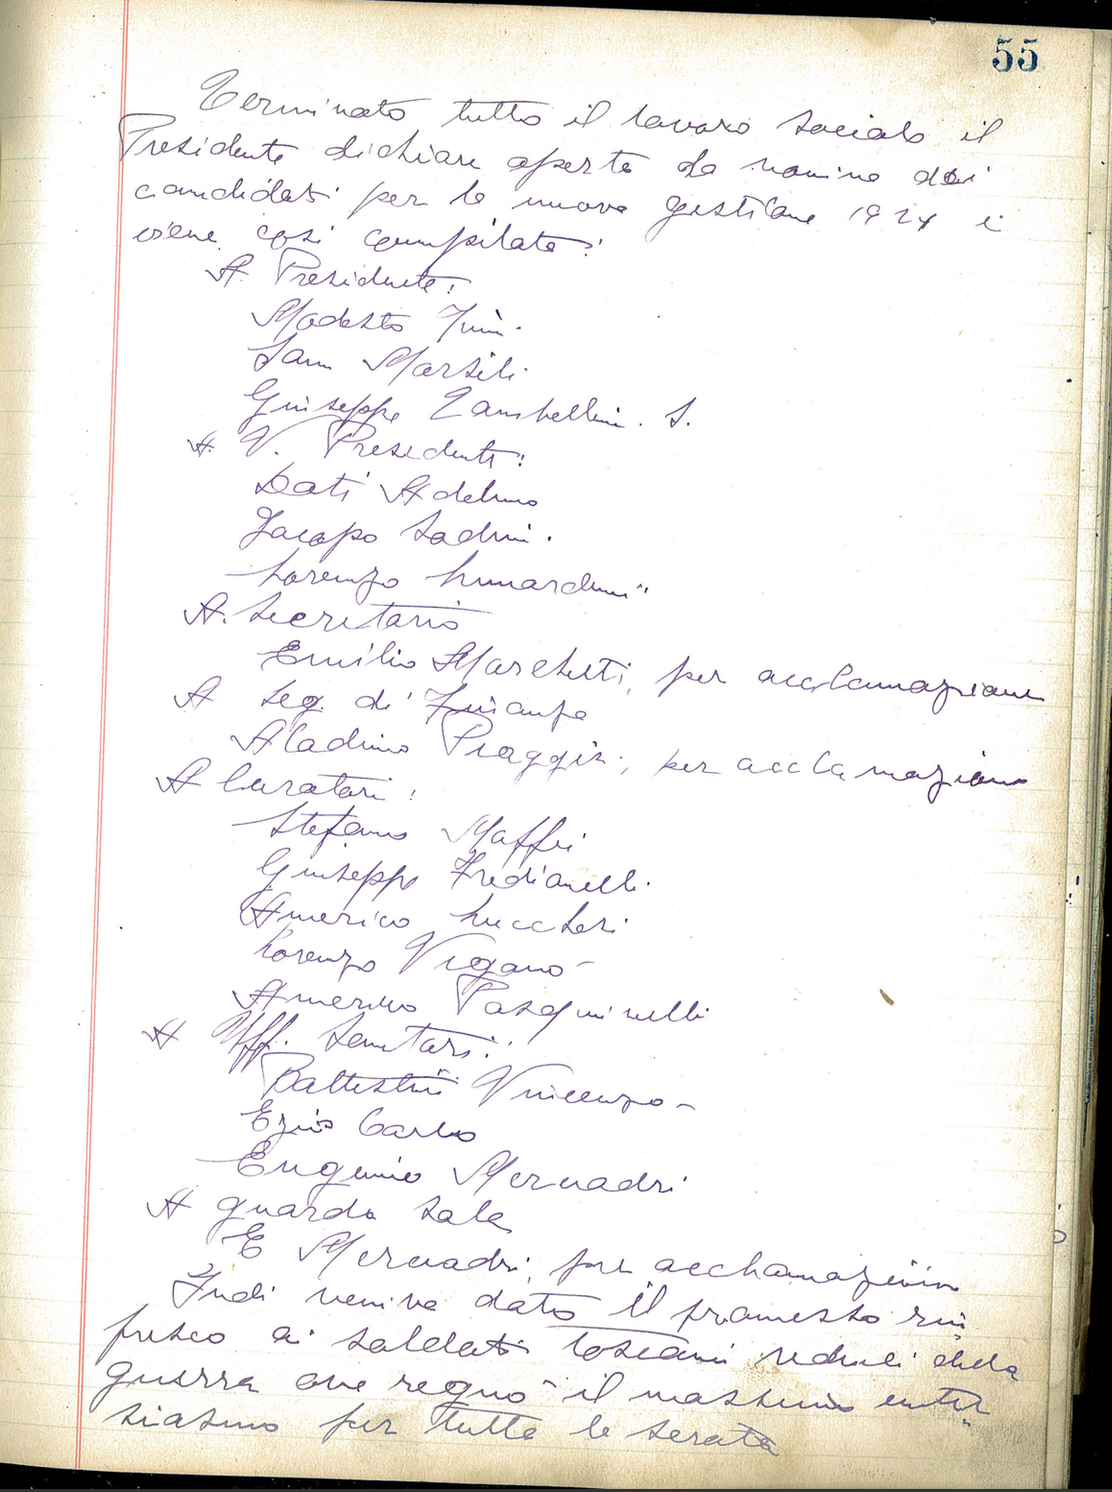 55
Terminato tutto il lavoro sociale il
Presidente dichiara aperta la nomina dei
candidati per la nuova gestione 1924 e
viene cosi compilata:
A. Presidente:
Modesto
Sam Marsili
Giuseppe Zambellini. S.
A. V. Presidente:
Dati Adelmo
Jacopo Sadini.
Lorenzo Lunardini
A. Secretario
Emilio Marchetti, per acclamazione
A Seg. di Finanza
Aladino Piaggia, per acclamazione
A Curatori:
Stefano Maffei
Giuseppe Fredianelli.
Americo Lucchesi
Lorenzo Viganò
Americo Pasquinelli
A Uff. Sanitari:
Battestini Vincenzo -
Ezio Carlo
Eugenio Mernadri
A guarda sala
E Mernadri, per acclamazione
Indi veniva dato il promesso rin
fresco ai soldati toscani reduci della
guerra ove regnò il massimo entu
siasmo per tutta la serata